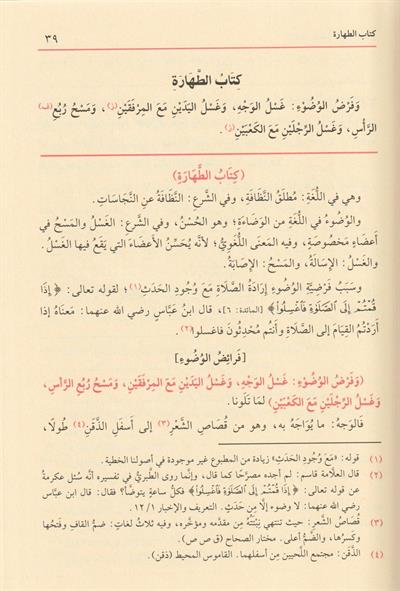 كتاب الطهارة
٣٩
كِتَابُ الطَّهَارَةِ
وَفَرْضُ الوُضُوْءِ: غَسْلُ الوَجْهِ، وَغَسْلُ اليَدَيْنِ مَعَ المِرْفَقَيْنِ (ز)، وَمَسْحُ رُبُعِ (ف)
الرَّأْسِ، وَغَسْلُ الرِّجْلَيْنِ مَعَ الكَعْبَيْنِ (ز).
(كِتَابُ الطَّهَارَةِ)
وهي في اللُّغَةِ: مُطْلَقُ النَّظَافَةِ، وفي الشَّرعِ: النَّظَافَةُ عن النَّجَاسَاتِ.
والوُضُوءُ في اللُّغَةِ من الوَضَاءَةِ؛ وهو الحُسْنُ، وفي الشَّرعِ: الغَسْلُ والمَسْحُ في
أعضاءٍ مَخْصُوصَةٍ، وفيه المعنَى اللُّغَوِيُّ؛ لأنَّه يُحَسِّنُ الأعضَاءَ التي يَقَعُ فيها الغَسْلُ.
والغَسْلُ: الإِسَالَةُ، والمَسْحُ: الإِصَابَةُ.
وسَبَبُ فَرْضِيَّةِ الوُضُوءِ إرَادَةُ الصَّلَاةِ مَعَ وُجُودِ الحَدَثِ(١)؛ لقوله تعالى: ﴿إِذَا
قُمْتُمْ إِلَى ٱلصَّلَوٰةِ فَٱغْسِلُواْ﴾ [المائدة: ٦]، قال ابنُ عبَّاسٍ رضي الله عنهما: مَعنَاهُ إذا
أرَدْتُمُ القِيَامَ إلى الصَّلاةِ وأنتُم مُحْدِثُونَ فاغسلوا(٢).
[فَرائِضُ الوُضُوءِ]
(وَفَرْضُ الوُضُوْءِ: غَسْلُ الوَجْهِ، وَغَسْلُ اليَدَيْنِ مَعَ المِرْفَقَيْنِ، وَمَسْحُ رُبُعِ الرَّأسِ،
وَغَسْلُ الرِّجْلَيْنِ مَعَ الكَعْبَيْنِ) لمَا تَلَونا.
فالوَجهُ: ما يُوَاجَهُ به، وهو من قُصَاصِ الشَّعْرِ(٣) إلى أسفَلِ الذَّقَنِ(٤) طُولًا،
(١) قوله: «مَعَ وُجُودِ الحَدَثِ» زيادة من المطبوع غير موجودة في أصولنا الخطية.
(٢) قال العلَّامة قاسم: لم أجده مصرَّحًا كما قال، وإنَّما روى الطَّبريُّ في تفسيره أنَّه سُئل عكرمةُ
عن قوله تعالى: ﴿إِذَا قُمْتُمْ إِلَى ٱلصَّلَوٰةِ فَٱغْسِلُواْ﴾ فكلُّ ساعةٍ يتوضَّأ؟ فقال: قال ابن عباس
رضي الله عنهما: لا وضوء إلَّا مِن حَدَثٍ. التعريف والإخبار ١/ ١٢.
(٣) قُصَاصُ الشَّعرِ: حيث تنتهي نِبْتَتُهُ من مقدَّمه ومؤخَّره، وفيه ثلاثُ لغاتٍ: ضمُّ القاف وفتحُها
وكسرُها، والضَّمُّ أعلى. مختار الصحاح (ق ص ص).
(٤) الذَّقَن: مجتمع اللَّحيين من أسفلهما. القاموس المحيط (ذقن).